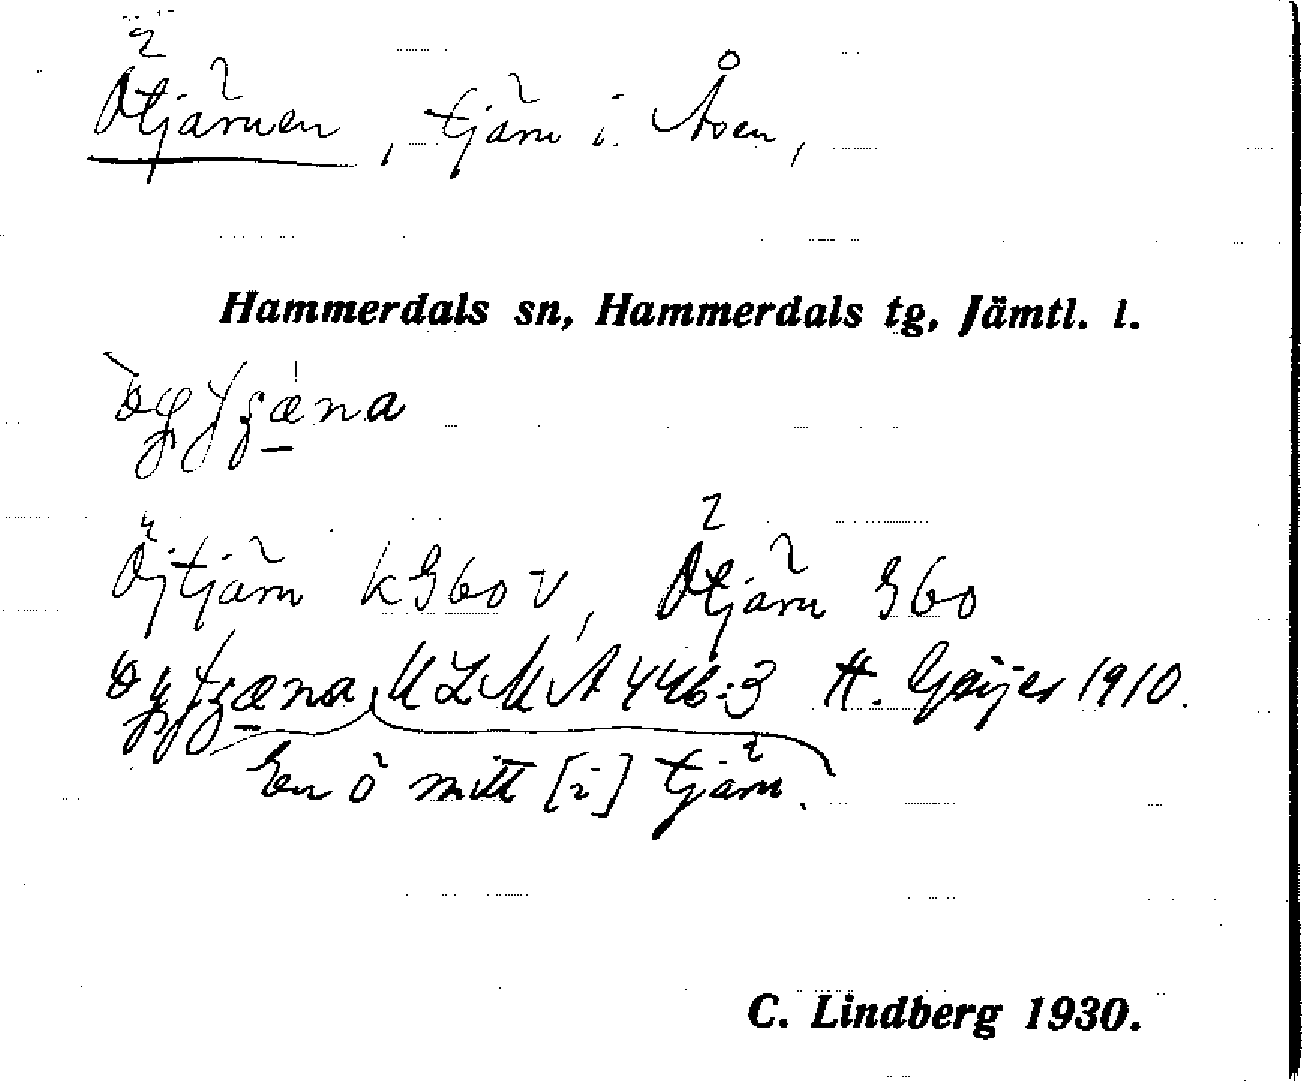 Ötjärnen, tjärn i Åsen,
Hammerdals sn, Hammerdals tg, Jämtl. l.
Öjtjärn k G60 v, Ötjärn G60
ULMA 446:3 H. Geijer 1910.
En ö mitt [i] tjärn.
C. Lindberg 1930.